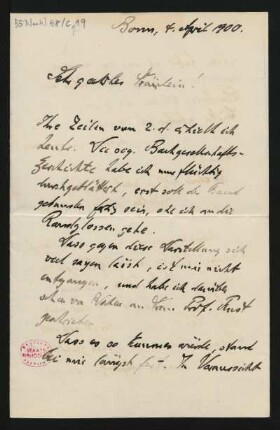 55 Nachl 68/C, 19
Bonn, 4. April 1900.
Sehr geehrtes Fräulein!
Ihre Zeilen vom 2. d. erhielt ich
heute. Die Bachgesellschafts-
geschichte habe ich nur flüchtig
durchgeblättert, erst soll der Band
gebunden sein, ehe ich an die
Randglossen gehe.
Dass gegen diese Darstellung sich
viel sagen lässt, ist mir nicht
entgangen, und habe ich darüber
schon vor an Hrn. Prof. Rust
geschrieben.
Dass es so kommen würde, stand
bei mir längst fest. In Voraussicht